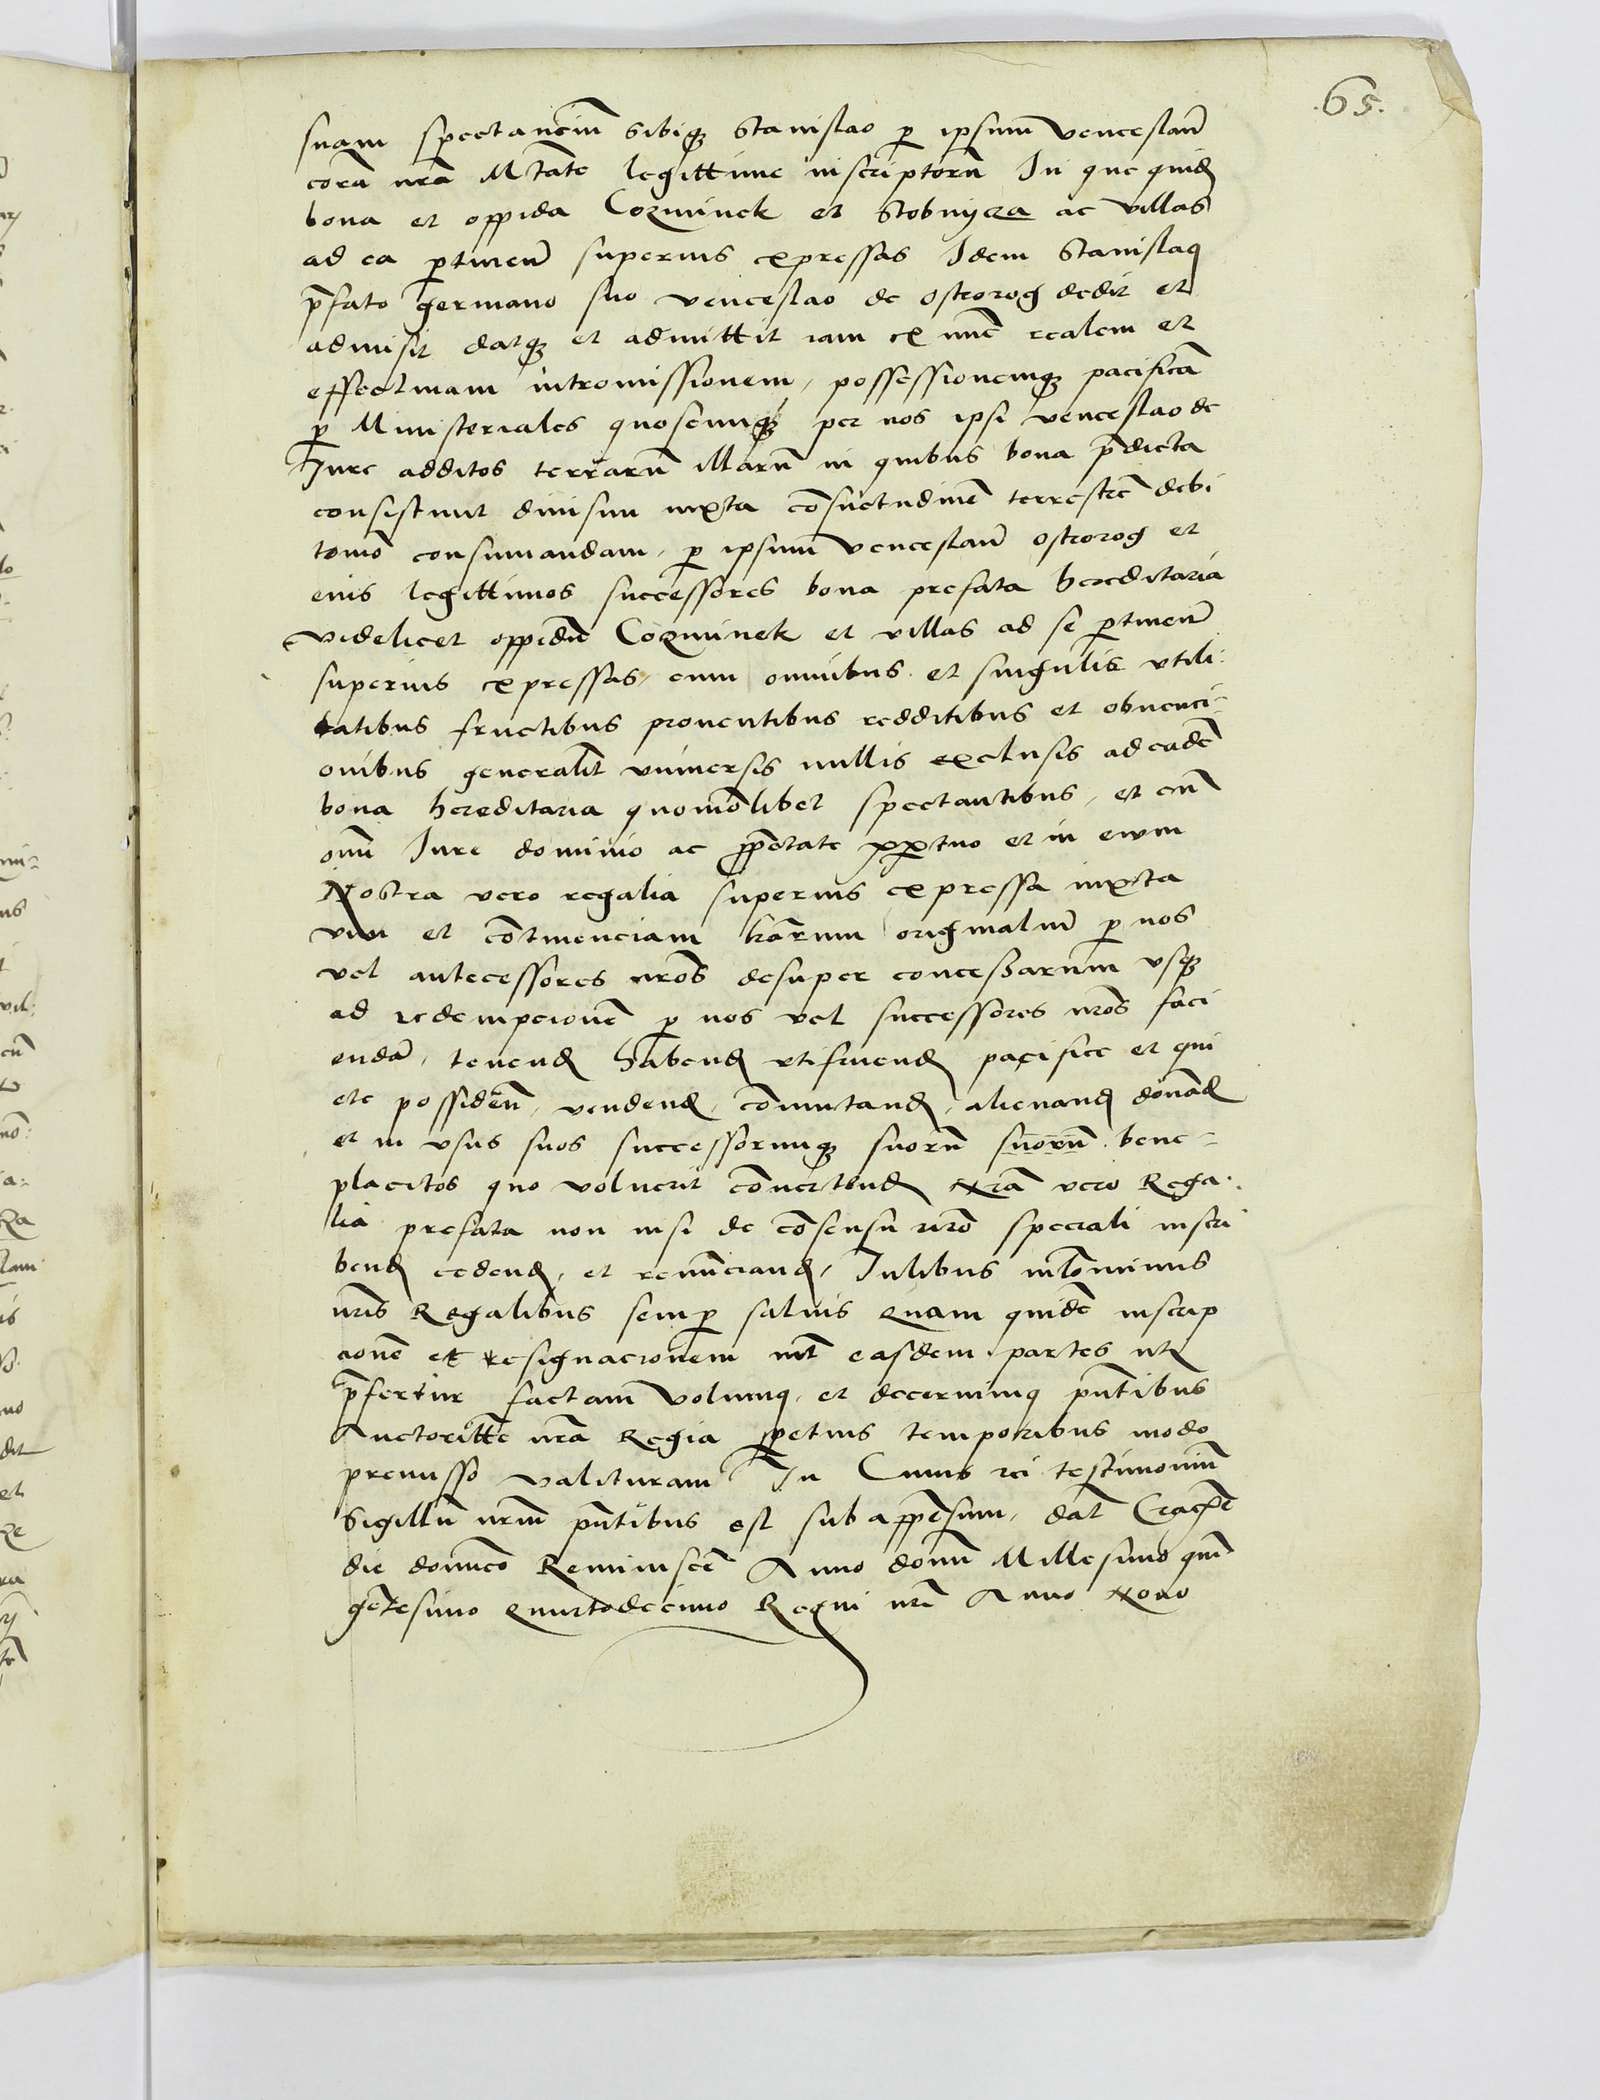 .65.
suam spectancium sibiq̃ Stanislao p̱ ipsum venceslaũ
corã nrã Mtate legittime inscriptorũ In que quidẽ
bona et oppida Cozminek et Stobnycza ac villas
ad ea ptineñ superius expressas Idem Stanislaus
p̃fato germano suo venceslao de ostrorog dedit et
admisit datq̃ et admittit iam ex nũc realem et
effectiuam intromissionem, possessionemq̃ pacificã
p̱ Ministeriales quoscunq̃ per nos ipsi venceslao de
Jure additos terrarũ illarũ in quibus bona p̃dicta
consistunt diuisim iuxta cõsuetudinẽ terrestrẽ debi
tomõ consumandam, p̱ ipsum venceslaũ ostrorog et
eius legittimos successores bona prefata hereditaria
videlicet oppidũ Cozminek et villas ad se ptineñ
superius expressas, cum omnibus et singulis vtili-
tatibus fructibus prouentibus redditibus et obuenci-
onibus generalit̃ vniuersis nullis exclusis ad eadẽ
bona hereditaria quomõlibet spectantibus, et cũ
oñi Iure dominio ac p̱petate p̱petuo et in ewm
Nostra vero regalia superius expressa iuxta
vim et cõtinenciam lrãrum originaliũ p̱ nos
vel antecessores nrõs desuper concessarum vsq̃
ad redempcionẽ p̱ nos vel successores nrõs faci
endã, tenend̃ habend̃ vtifruend̃ pacifice et qui
ete possideñ, vendend̃, cõmutand̃, alienand̃ donãd̃
et in vsus suos successorumq̃ suorũ suorũ bene-
placitos quo voluerit cõuertend̃ Nrã vero Rega-
lia prefata non nisi de cõsensu nrõ speciali inscri
bend̃ cedend̃, et renũciand̃, Iuribus
nr̃is Regalibus semp̱ saluis Quam quidẽ inscrip
cionẽ et resignacionem int̃ easdem partes vti
p̃fertur factam volumus, et decernimus pñtibus
Auctoritte nrã Regia p̱petuis temporibus modo
premisso valituram In Cuius rei testimoniũ
Sigillũ nrm̃ pñtibus est subappẽsum, dat̃ Cracouie
die dominico Reminiscẽ Anno domini Millesimo quin
gẽtesimo Quartodecimo Regni nrĩ Anno Nono